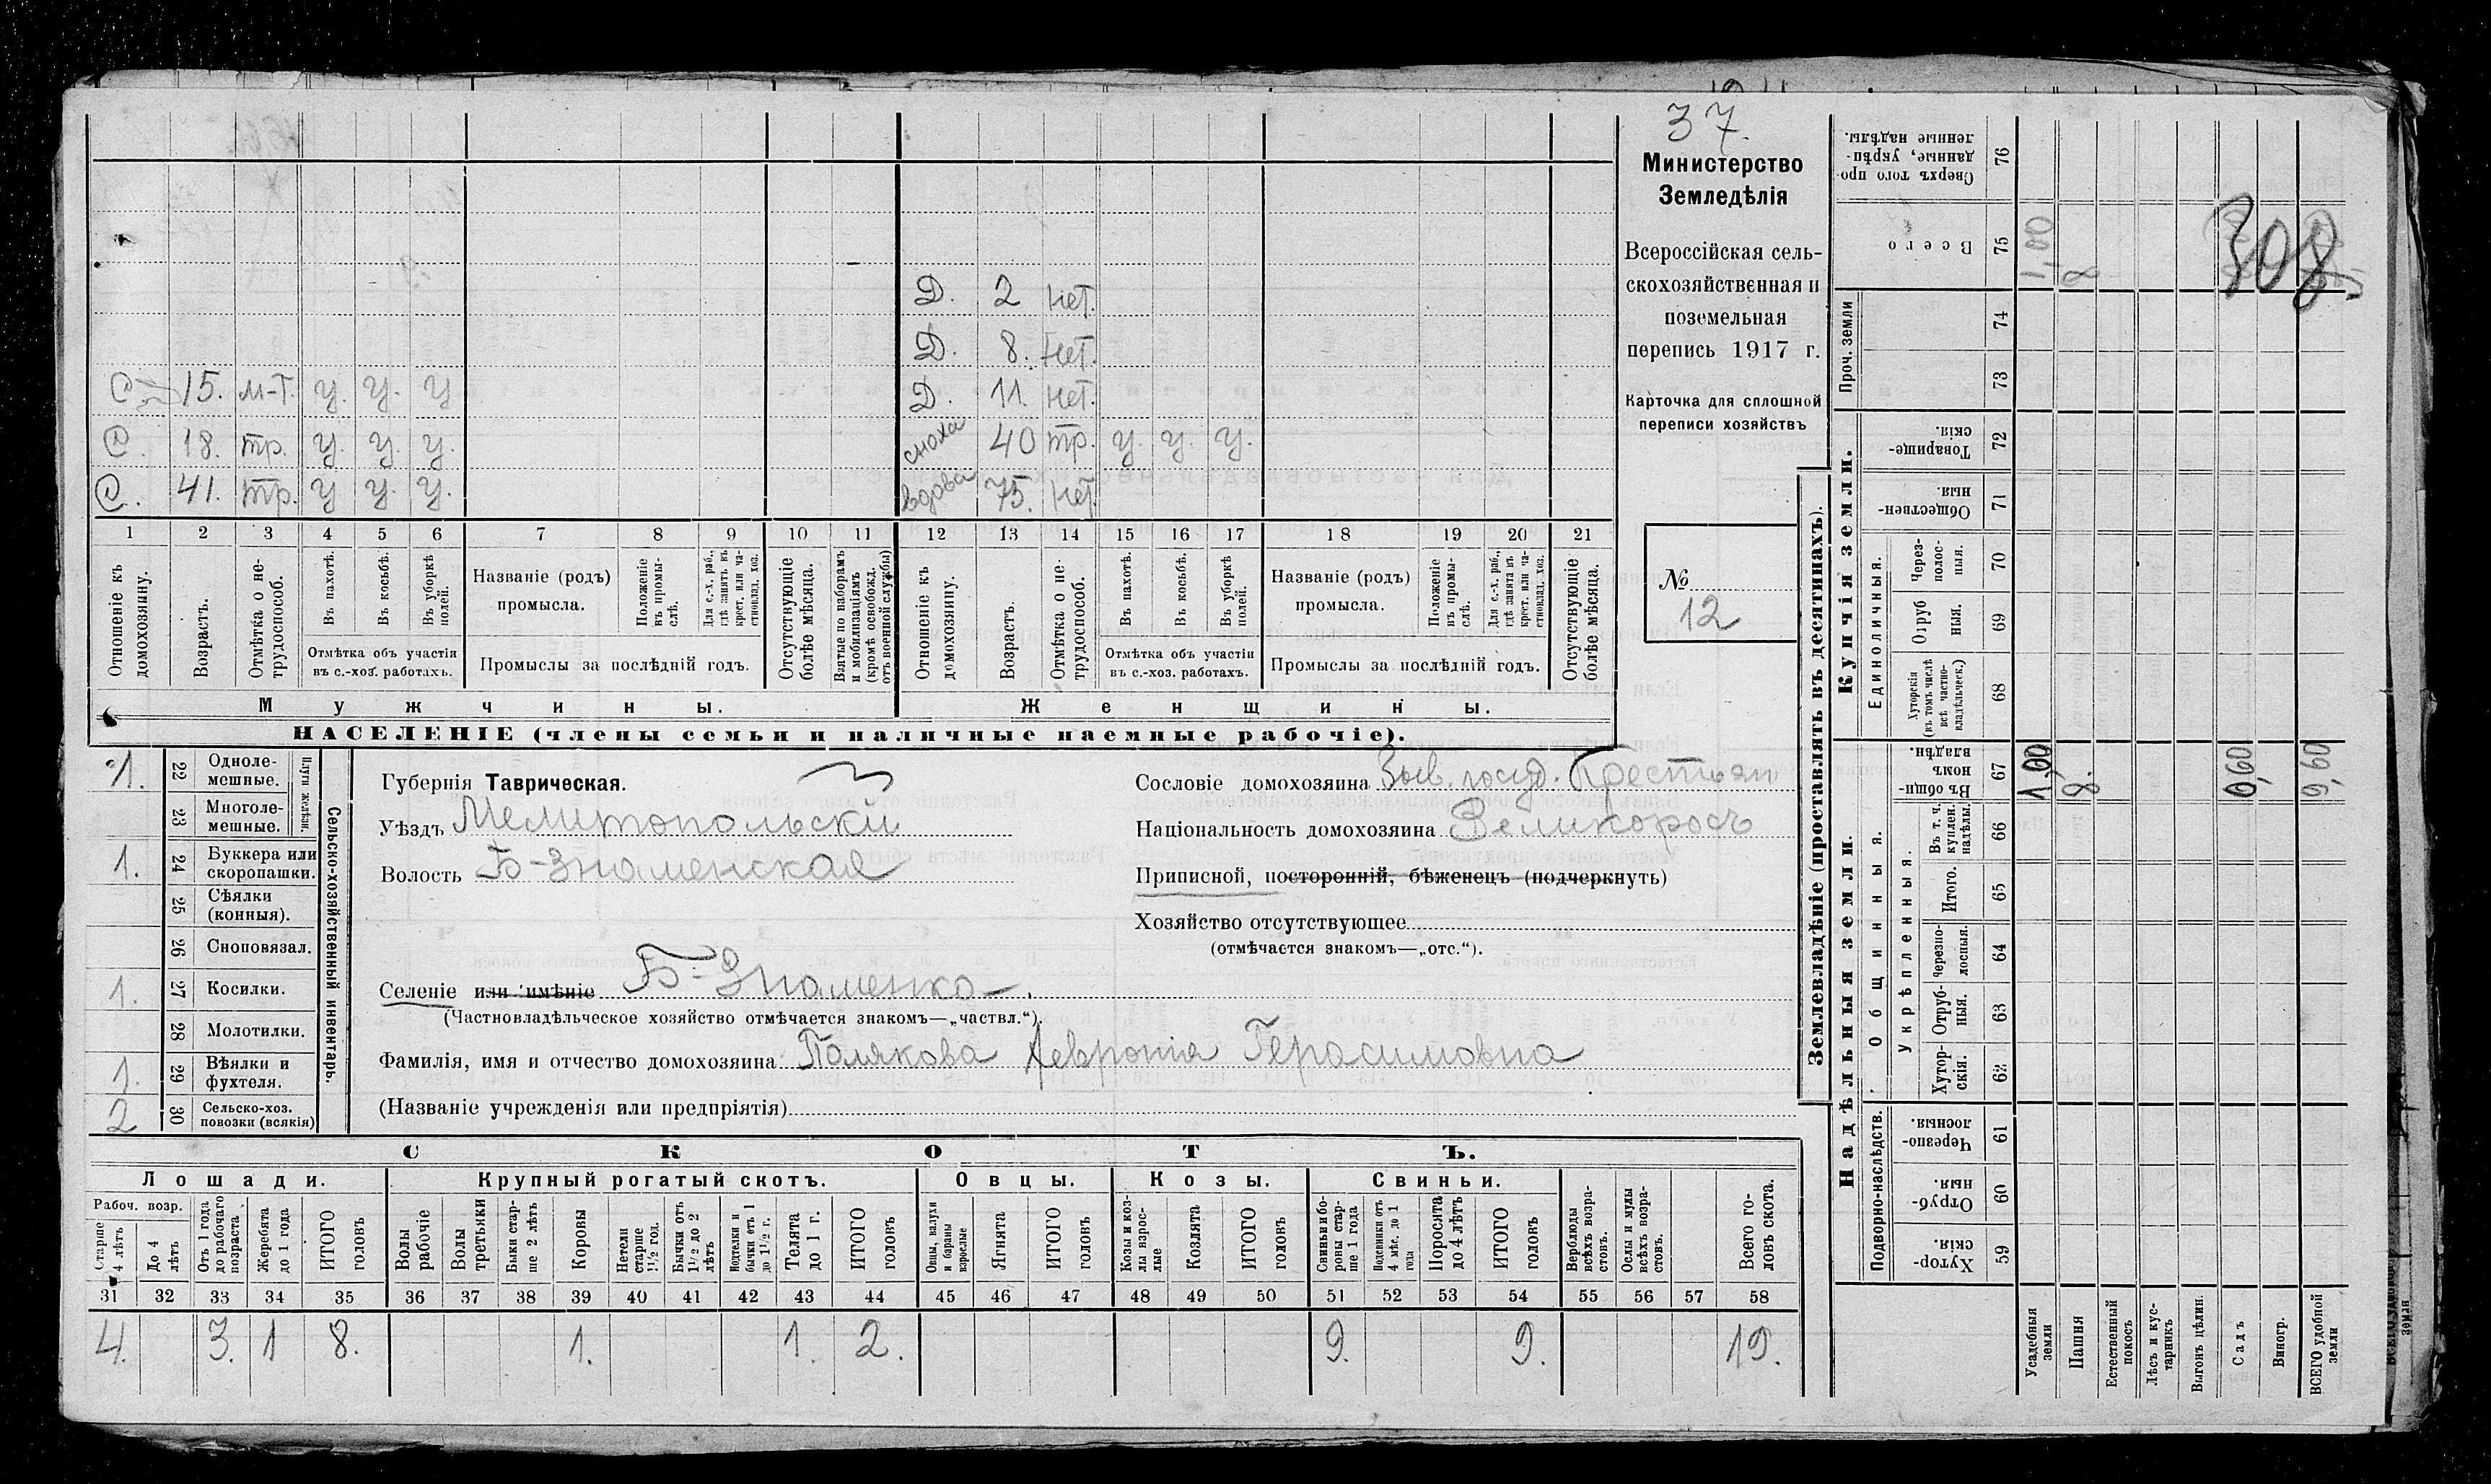 37.
Министерство
Земледѣлія
Всероссійская сель-
скохозяйственная и
поземельная
перепись 1917 г.
Карточка для сплошной
переписи хозяйствъ
№
12
308
Д. 2 нет.
Д. 8. Нет.
С 15. м-т. у. у. у Д. 11. Нет.
С. 18. тр. у. у. у. сноха 40 тр. у. у. у.
С. 41. тр. у у. у. вдова 75. Нет
1 2 3 4 5 6 7 8 9 10 11 12 13 14 15 16 17 18 19 20 21
Отношеніе къ домохозяину.
Возрастъ.
Отмѣтка о не-трудоспособ.
Въ пахотѣ.
Въ косьбѣ.
Въ уборкѣ полей.
Отмѣтка объ участіи
въ с.-хоз. работахъ.
Названіе (родъ)
промысла.
Положеніе въ промы-слѣ.
Для с.-х. раб., гдѣ занятъ въ крест. или ча-стновлад. хоз.
Промыслы за послѣдній годъ.
Отсутствующіе болѣе мѣсяца.
Взятые по наборамъ и мобилизаціямъ (кромѣ освобожд. отъ военной службы)
Отношеніе къ домохозяину.
Возрастъ.
Отмѣтка о не-трудоспособ.
Въ пахотѣ.
Въ косьбѣ.
Въ уборкѣ полей.
Отмѣтка объ участіи
въ с.-хоз. работахъ.
Названіе (родъ)
промысла.
Положеніе въ промы-слѣ.
Для с.-х. раб., гдѣ занята въ крест. или ча-стновлад. хоз.
Промыслы за послѣдній годъ.
Отсутствующіе болѣе мѣсяца.
Мужчины. Женщины.
НАСЕЛЕНІЕ (члены семьи и наличные наемные рабочіе).
Сельско-хозяйственный инвентарь.
Плуги желѣзн.
1. 22 Одноле-мешные.
23 Многоле-мешные.
1. 24 Буккера или скоропашки.
25 Сѣялки (конныя).
26 Сноповязал.
1. 27 Косилки.
28 Молотилки.
1. 29 Вѣялки и фухтеля.
2 30 Сельско-хоз. повозки (всякія)
Губернія Таврическая.
Уѣздъ Мелитопольскій
Волость Б-Знаменская
Селеніе или имѣніе Б-Знаменка
(Частновладѣльческое хозяйство отмѣчается знакомъ—„частвл.“).
Фамилія, имя и отчество домохозяина Полякова Февронія Герасимовна
(Названіе учрежденія или предпріятія)
Сословіе домохозяина Быв. госуд. Крестьян
Національность домохозяина Великоросъ
Приписной, посторонній, бѣженецъ (подчеркнуть)
Хозяйство отсутствующее
(отмѣчается знакомъ—„отс.“).
СКОТЪ.
Лошади. Крупный рогатый скотъ. Овцы. Козы. Свиньи.
Рабоч. возр.
Старше 4 лѣтъ
До 4 лѣтъ
Отъ 1 года до рабочаго возраста
Жеребята до 1 года
ИТОГО головъ
Волы рабочіе
Волы третьяки
Быки стар-ше 2 лѣтъ
Коровы
Нетели старше 1½ год.
Бычки отъ 1½ до 2 лѣтъ
Подтелки и бычки отъ 1 до 1½ г.
Телята до 1 г.
ИТОГО головъ
Овцы, валухи и бараны взрослые
Ягнята
ИТОГО головъ
Козы и коз-лы взрос-лые
Козлята
ИТОГО головъ
Свиньи и бо-ровы стар-ше 1 года
Подсвинки отъ 4 мѣс. до 1 года
Поросята до 4 лѣтъ
ИТОГО головъ
Верблюды всѣхъ возра-стовъ.
Ослы и мулы всѣхъ возра-стовъ.
Всего го-ловъ скота.
31 32 33 34 35 36 37 38 39 40 41 42 43 44 45 46 47 48 49 50 51 52 53 54 55 56 57 58
4. 3. 1 8. 1. 1. 2. 9. 9. 19.
Землевладѣніе (проставлять въ десятинахъ).
Купчія земли.
Надѣльныя земли.
Сверхъ того про-данные, укрѣп-ленные надѣлы. 76
Всего 75 1,00 8
Проч. земли 74
73
Товарище-скія. 72
Обществен-ныя. 71
Единоличныя.
Через-полос-ныя. 70
Отруб ныя. 69
Хуторскія (въ томъ числѣ всѣ частно-владѣльческ.) 68
Общинныя.
Въ общин-номъ владѣн. 67 1,00 8. 0,60 9,60
Укрѣпленныя.
Въ т. ч. куплен. надѣлы. 66
Итого. 65
Черезпо-лосныя. 64
Отруб-ныя. 63
Хутор-скія. 62
Подворно-наслѣдств.
Черезпо-лосныя. 61
Отруб-ныя. 60
Хутор-скія. 59
Усадебныя земли
Пашня
Естественный покосъ
Лѣсъ и кус-тарникъ
Выгонъ цѣлин.
Садъ
Виногр.
ВСЕГО удобной земли